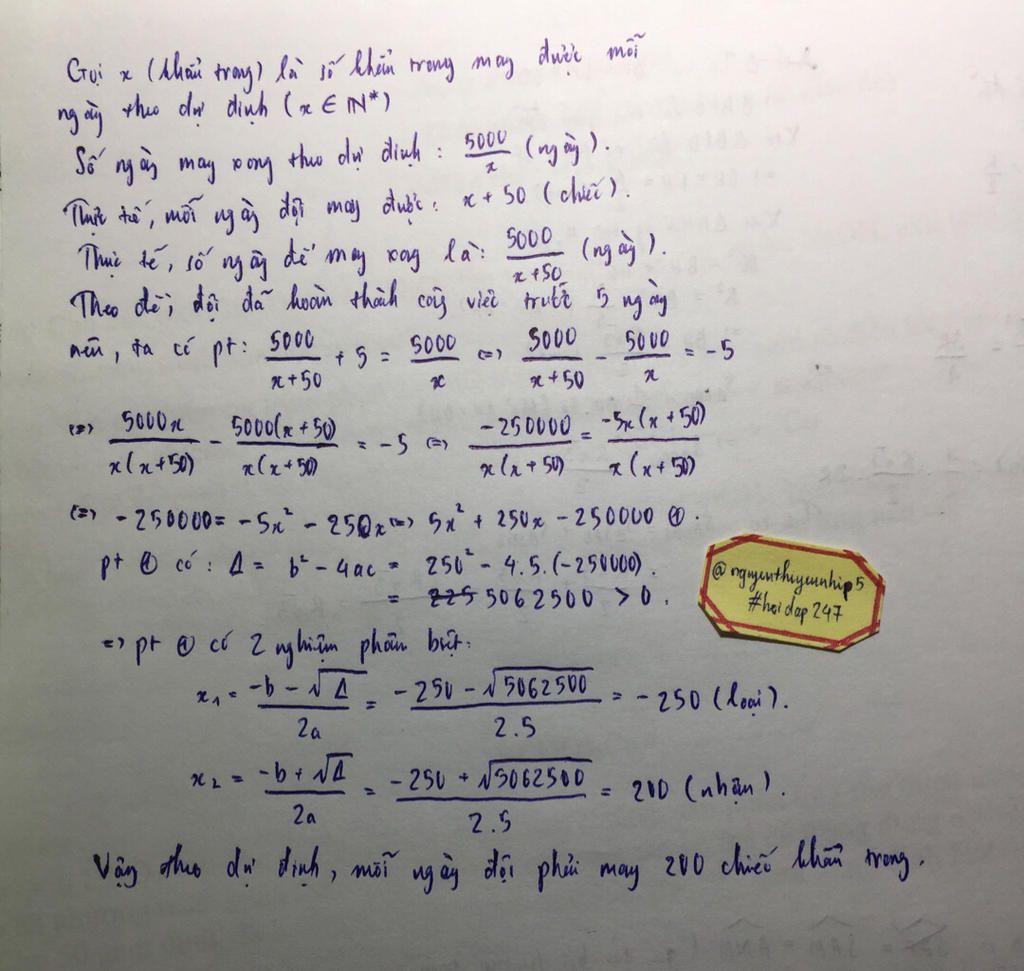 Gọi x (khẩu trang) là số khẩu trang may được mỗi
ngày theo dự định (x ∈ ℕ*)
Số ngày may xong theo dự định : 5000/x (ngày).
Thực tế, mỗi ngày đội may được : x + 50 (chiếc).
Thực tế, số ngày để may xong là: 5000/(x+50) (ngày).
Theo đề, đội đã hoàn thành công việc trước 5 ngày
nên, ta có pt: 5000/(x+50) + 5 = 5000/x <=> 5000/(x+50) - 5000/x = -5
<=> 5000x/(x(x+50)) - 5000(x+50)/(x(x+50)) = -5 <=> -250000/(x(x+50)) = -5x(x+50)/(x(x+50))
<=> -250000 = -5x² - 250x <=> 5x² + 250x - 250000 ①.
pt ① có : Δ = b² - 4ac = 250² - 4.5.(-250000).
= 5062500 > 0.
=> pt ① có 2 nghiệm phân biệt:
x₁ = (-b - √Δ)/2a = (-250 - √5062500)/2.5 = -250 (loại).
x₂ = (-b + √Δ)/2a = (-250 + √5062500)/2.5 = 200 (nhận).
Vậy theo dự định, mỗi ngày đội phải may 200 chiếc khẩu trang.
@nguyenthiyennhip5
#hoidap247